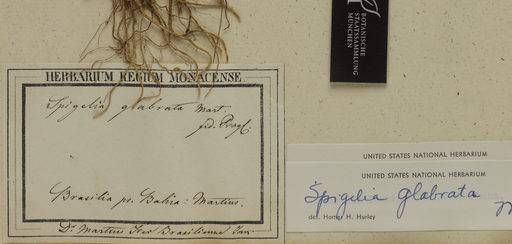 BOTANISCHE
STAATSSAMMLUNG
MÜNCHEN
HERBARIUM REGIUM MONACENSE
Spigelia glabrata Mart.
fid. Progl.
Brasilia pr. Bahia: Martius.
Dr. Martius Iter Brasilienne
UNITED STATES NATIONAL HERBARIUM
UNITED STATES NATIONAL HERBARIUM
Spigelia glabrata
det. Homer H. Hurley